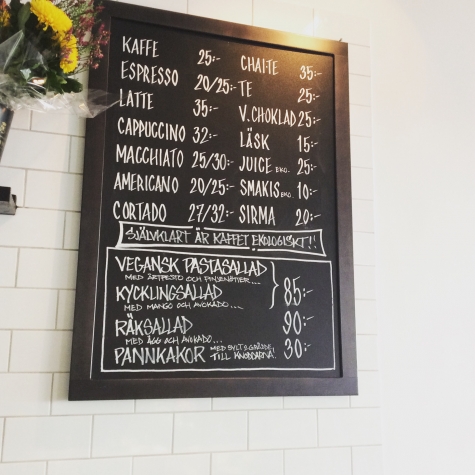 KAFFE 25:-
ESPRESSO 20/25:-
LATTE 35:-
CAPPUCCINO 32:-
MACCHIATO 25/30:-
AMERICANO 20/25:-
CORTADO 27/32:-
CHAI:TE 35:-
TE 25:-
V.CHOKLAD 25:-
LÄSK 15:-
JUICE EKO. 25:-
SMAKIS EKO. 10:-
SIRMA 20:-
SJÄVKLART ÄR KAFFET EKOLOGISKT!!
VEGANSK PASTASALLAD
MED ÄRTPESTO OCH PINJENÖTTER...
KYCKLINGSALLAD 85:-
MED MANGO OCH AVOKADO...
RÄKSALLAD 90:-
MED ÄGG OCH AVOKADO...
PANNKAKOR MED SYLT & GRÄDDE, 30:-
TILL KNODDARNA!